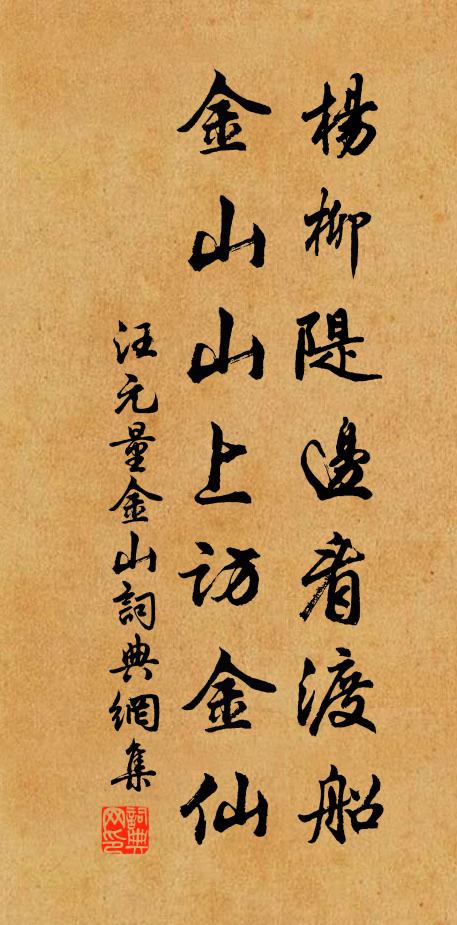 楊柳隄邊看渡船
金山山上訪金仙
汪元量金山詞典網集
詞典
网印